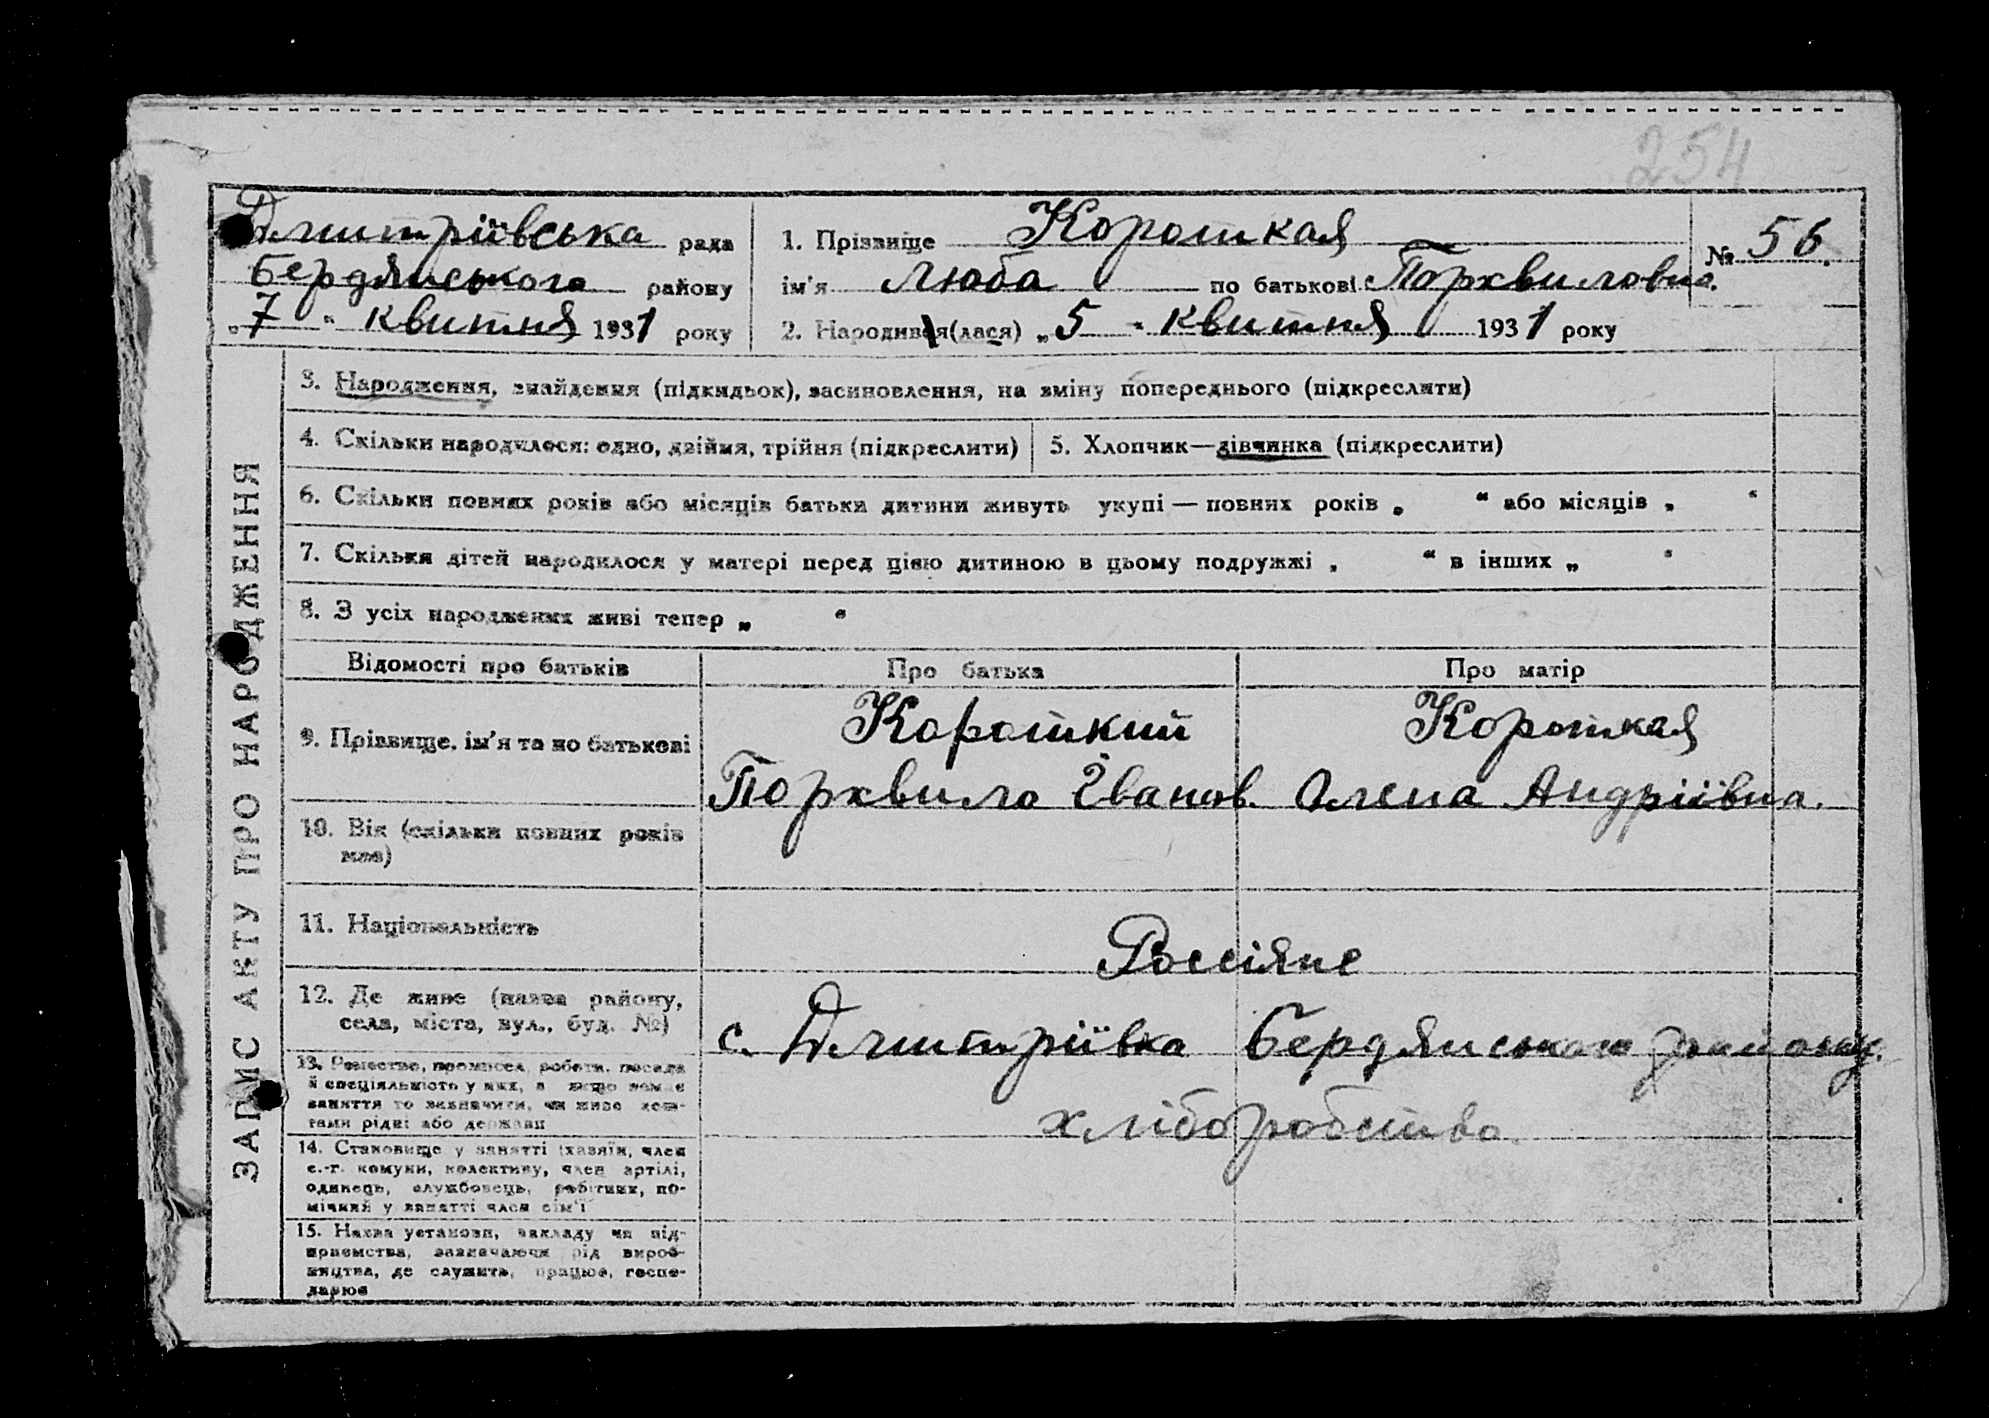 254
Дмитріївська рада
Бердянського району
„7" квитня 1931 року
1. Прізвище Короткая
ім'я Люба по батькові Порхвиловна.
№ 56.
2. Народився(лася) „5" квитня 1931 року
ЗАПИС АКТУ ПРО НАРОДЖЕННЯ
3. Народження, знайдення (підкидьок), засиновлення, на зміну попереднього (підкреслити)
4. Скільки народилося: одно, двійня, трійня (підкреслити)
5. Хлопчик—дівчинка (підкреслити)
6. Скільки повних років або місяців батьки дитини живуть укупі — повних років „ " або місяців „ "
7. Скільки дітей народилося у матері перед цією дитиною в цьому подружжі „ " в інших „ "
8. З усіх народжених живі тепер „ "
Відомості про батьків Про батька Про матір
9. Прізвище, ім'я та по батькові
Короткий
Порхвило Іванов.
Короткая
Олена Андріївна.
10. Вік (скільки повних років
має)
11. Національність
Россіяне
12. Де живе (назва району,
села, міста, вул., буд. №)
с. Дмитріївка Бердянського району.
13. Ремество, промисел, робота, посада
й спеціяльність у них, а якщо немає
заняття то зазначити, чи живе кош-
тами рідні або держави
хліборобство.
14. Становище у занятті (хазяїн, член
с.-г. комуни, колективу, член артілі,
одинець, службовець, робітник, по-
мічний у занятті член сім'ї
15. Назва установи, закладу чи під-
приємства, зазначаючи рід вироб-
ництва, де служить, працює, госпо-
дарює